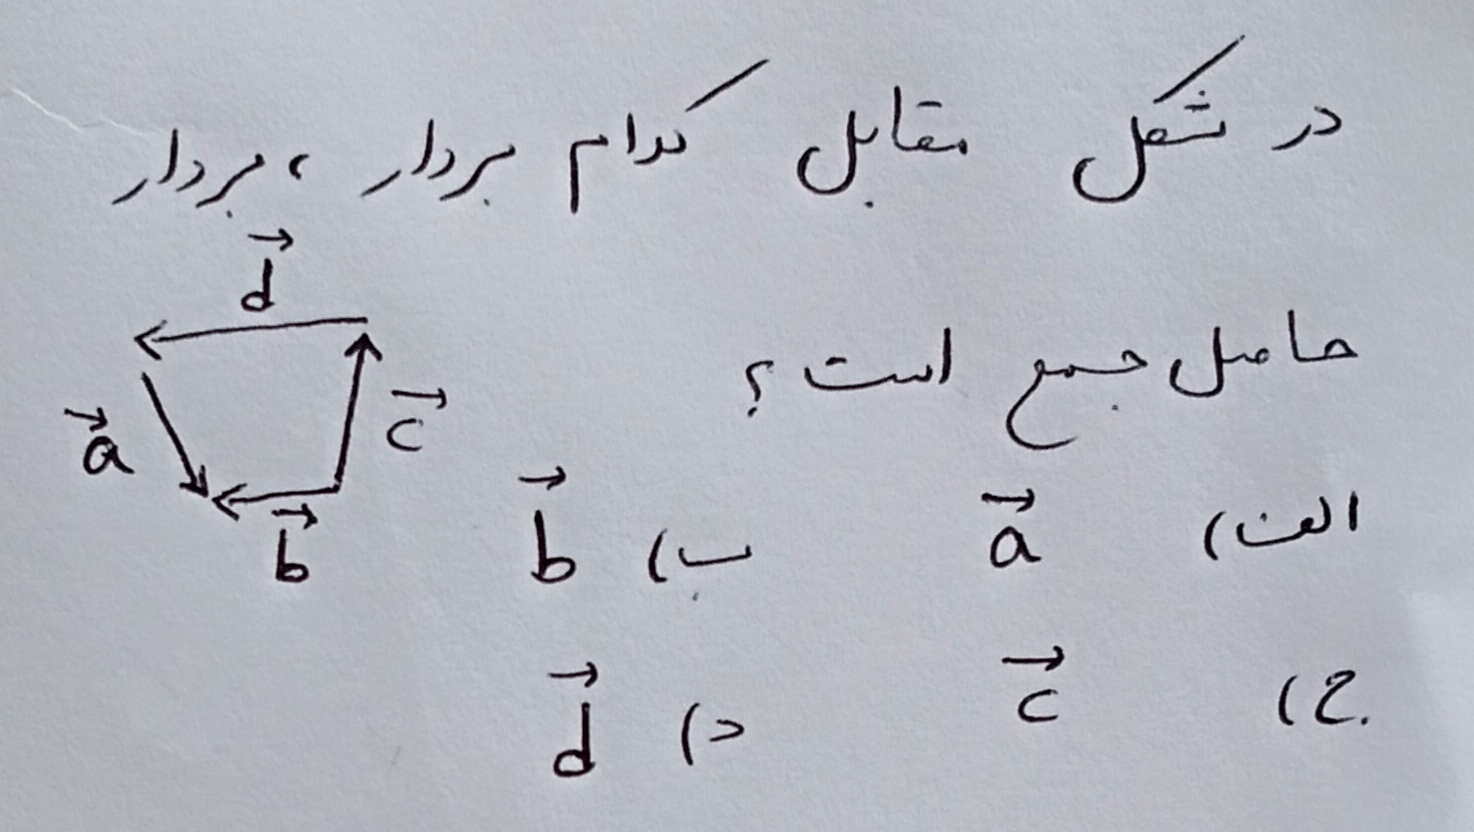 در شکل مقابل کدام بردار ، بردار
حاصل جمع است ؟
d
a
c
b
الف) a ب) b
ج) c د) d